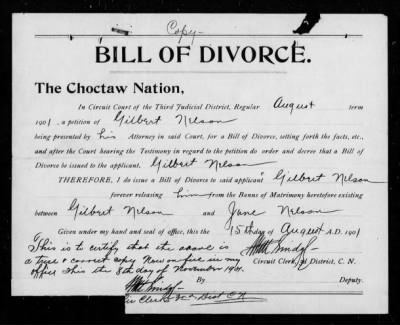 Copy-
BILL OF DIVORCE.
The Choctaw Nation,
In Circuit Court of the Third Judicial District, Regular August term
1901, a petition of Gilbert Nelson
being presented by his Attorney in said Court, for a Bill of Divorce, setting forth the facts, etc.,
and after the Court hearing the Testimony in regard to the petition do order and decree that a Bill
of Divorce be issued to the applicant. Gilbert Nelson
THEREFORE, I do issue a Bill of Divorce to said applicant Gilbert Nelson
forever releasing him from the Banns of Matrimony heretofore existing
between Gilbert Nelson and Jane Nelson
Given under my hand and seal of office, this the 15th day of August A.D. 1901
This is to certify that the above is
a true & correct copy Now on file in my
Circuit Clerk, District, C. N.
office This the 8th day of November 1901.
By Deputy.
Clerk Dist C N